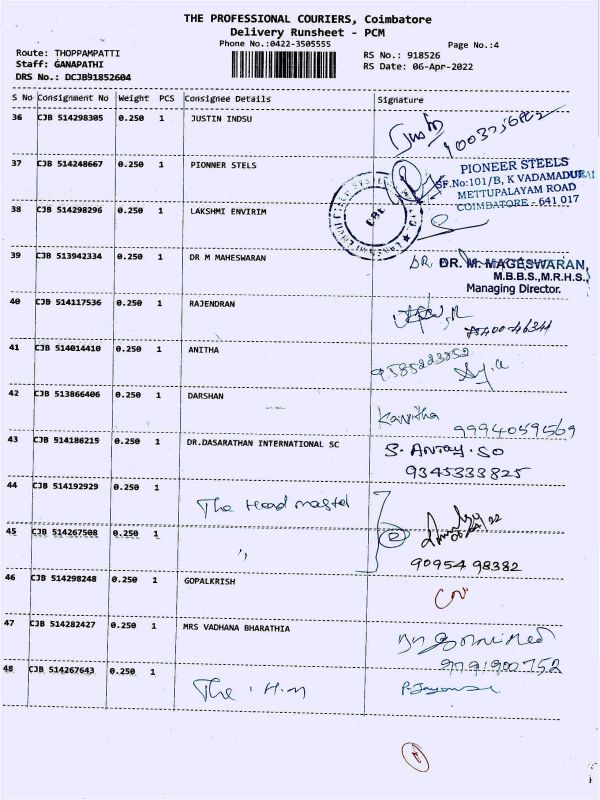 THE PROFESSIONAL COURIERS, Coimbatore
Delivery Runsheet - PCM
Phone No.:0422-3505555
Page No.:4
Route: THOPPAMPATTI
RS No.: 918526
Staff: GANAPATHI
RS Date: 06-Apr-2022
DRS No.: DCJB91852604
S No Consignment No Weight PCS Consignee Details Signature
36 CJB 514298305 0.250 1 JUSTIN INDSU
37 CJB 514248667 0.250 1 PIONNER STELS
PIONEER STEELS
SF.No:101/B, K VADAMADURAI
METTUPALAYAM ROAD
COIMBATORE - 641 017
38 CJB 514298296 0.250 1 LAKSHMI ENVIRIM
CBE
39 CJB 513942334 0.250 1 DR M MAHESWARAN
DR. DR. M. MAGESWARAN,
M.B.B.S.,M.R.H.S.,
Managing Director.
40 CJB 514117536 0.250 1 RAJENDRAN
41 CJB 514014410 0.250 1 ANITHA
9585223852
42 CJB 513866406 0.250 1 DARSHAN
Kavitha
9994059569
43 CJB 514186219 0.250 1 DR.DASARATHAN INTERNATIONAL SC
9345333825
44 CJB 514192929 0.250 1 The Head master
45 CJB 514267508 0.250 1 "
90954 98382
46 CJB 514298248 0.250 1 GOPALKRISH
47 CJB 514282427 0.250 1 MRS VADHANA BHARATHIA
9791900752
48 CJB 514267643 0.250 1 The H.m